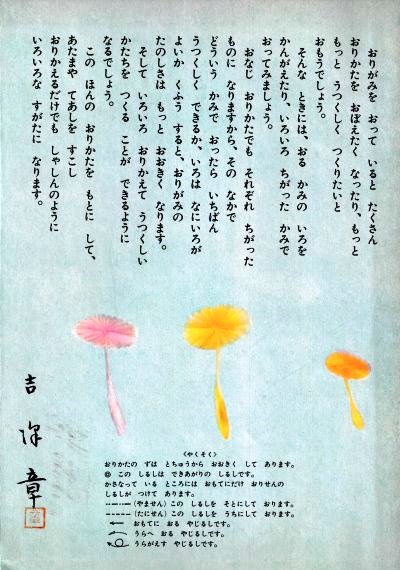 おりがみを おって いると たくさん
おりかたを おぼえたく なったり、もっと
もっと うつくしく つくりたいと
おもうでしょう。
そんな ときには、おる かみの いろを
かんがえたり、いろいろ ちがった かみで
おってみましょう。
おなじ おりかたでも それぞれ ちがった
ものに なりますから、その なかで
どういう かみで おったら いちばん
うつくしく できるか、いろは なにいろが
よいか くふう すると、おりがみの
たのしさは もっと おおきく なります。
そして いろいろ おりかえて うつくしい
かたちを つくる ことが できるように
なるでしょう。
この ほんの おりかたを もとに して、
あたまや てあしを すこし
おりかえるだけでも しゃしんのように
いろいろな すがたに なります。
吉
章
《やくそく》
おりかたの ずは とちゅうから おおきく して あります。
◎ この しるしは できあがりの しるしです。
かさなって いる ところには おもてにだけ おりせんの
しるしが つけて あります。
(やません) この しるしを そとにして おります。
(たにせん) この しるしを うちにして おります。
おもてに おる やじるしです。
うらへ おる やじるしです。
うらがえす やじるしです。